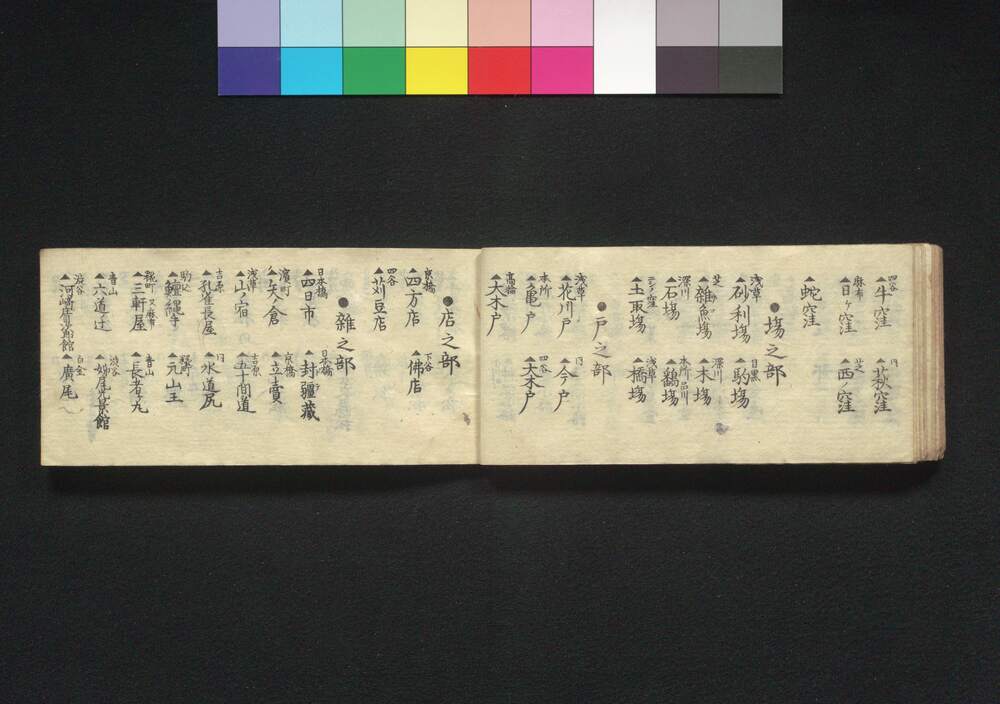 四谷 ▲牛窪 仝 ▲萩窪
麻布 ▲日ケ窪 芝 ▲西ノ窪
▲蛇窪
●塲之部
浅草 ▲砂利塲 目黒 ▲駒塲
芝 ▲雑魚塲 深川 ▲木塲
深川 ▲石塲 本所品川 ▲鷄塲
▲土取塲 浅草 ▲橋塲
●戸之部
浅草 ▲花川戸 仝 ▲今戸
本所 ▲亀ノ戸 四谷 ▲大木戸
高輪 ▲大木戸
●店之部
京橋 ▲四方店 下谷 ▲佛店
四谷 ▲苅豆店
●雑之部
日本橋 ▲四日市 日本橋 ▲封疆藏
濱町 ▲矢ノ倉 京橋 ▲立賣
浅草 ▲山ノ宿 吉原 ▲五十間道
吉原 ▲孔雀長屋 仝 ▲水道尻
駒込 ▲鰻縄手 糀町 ▲元山王
糀町又麻布 ▲三軒屋 青山 ▲長者丸
青山 ▲六道辻 渋谷
渋谷 白金 ▲廣尾